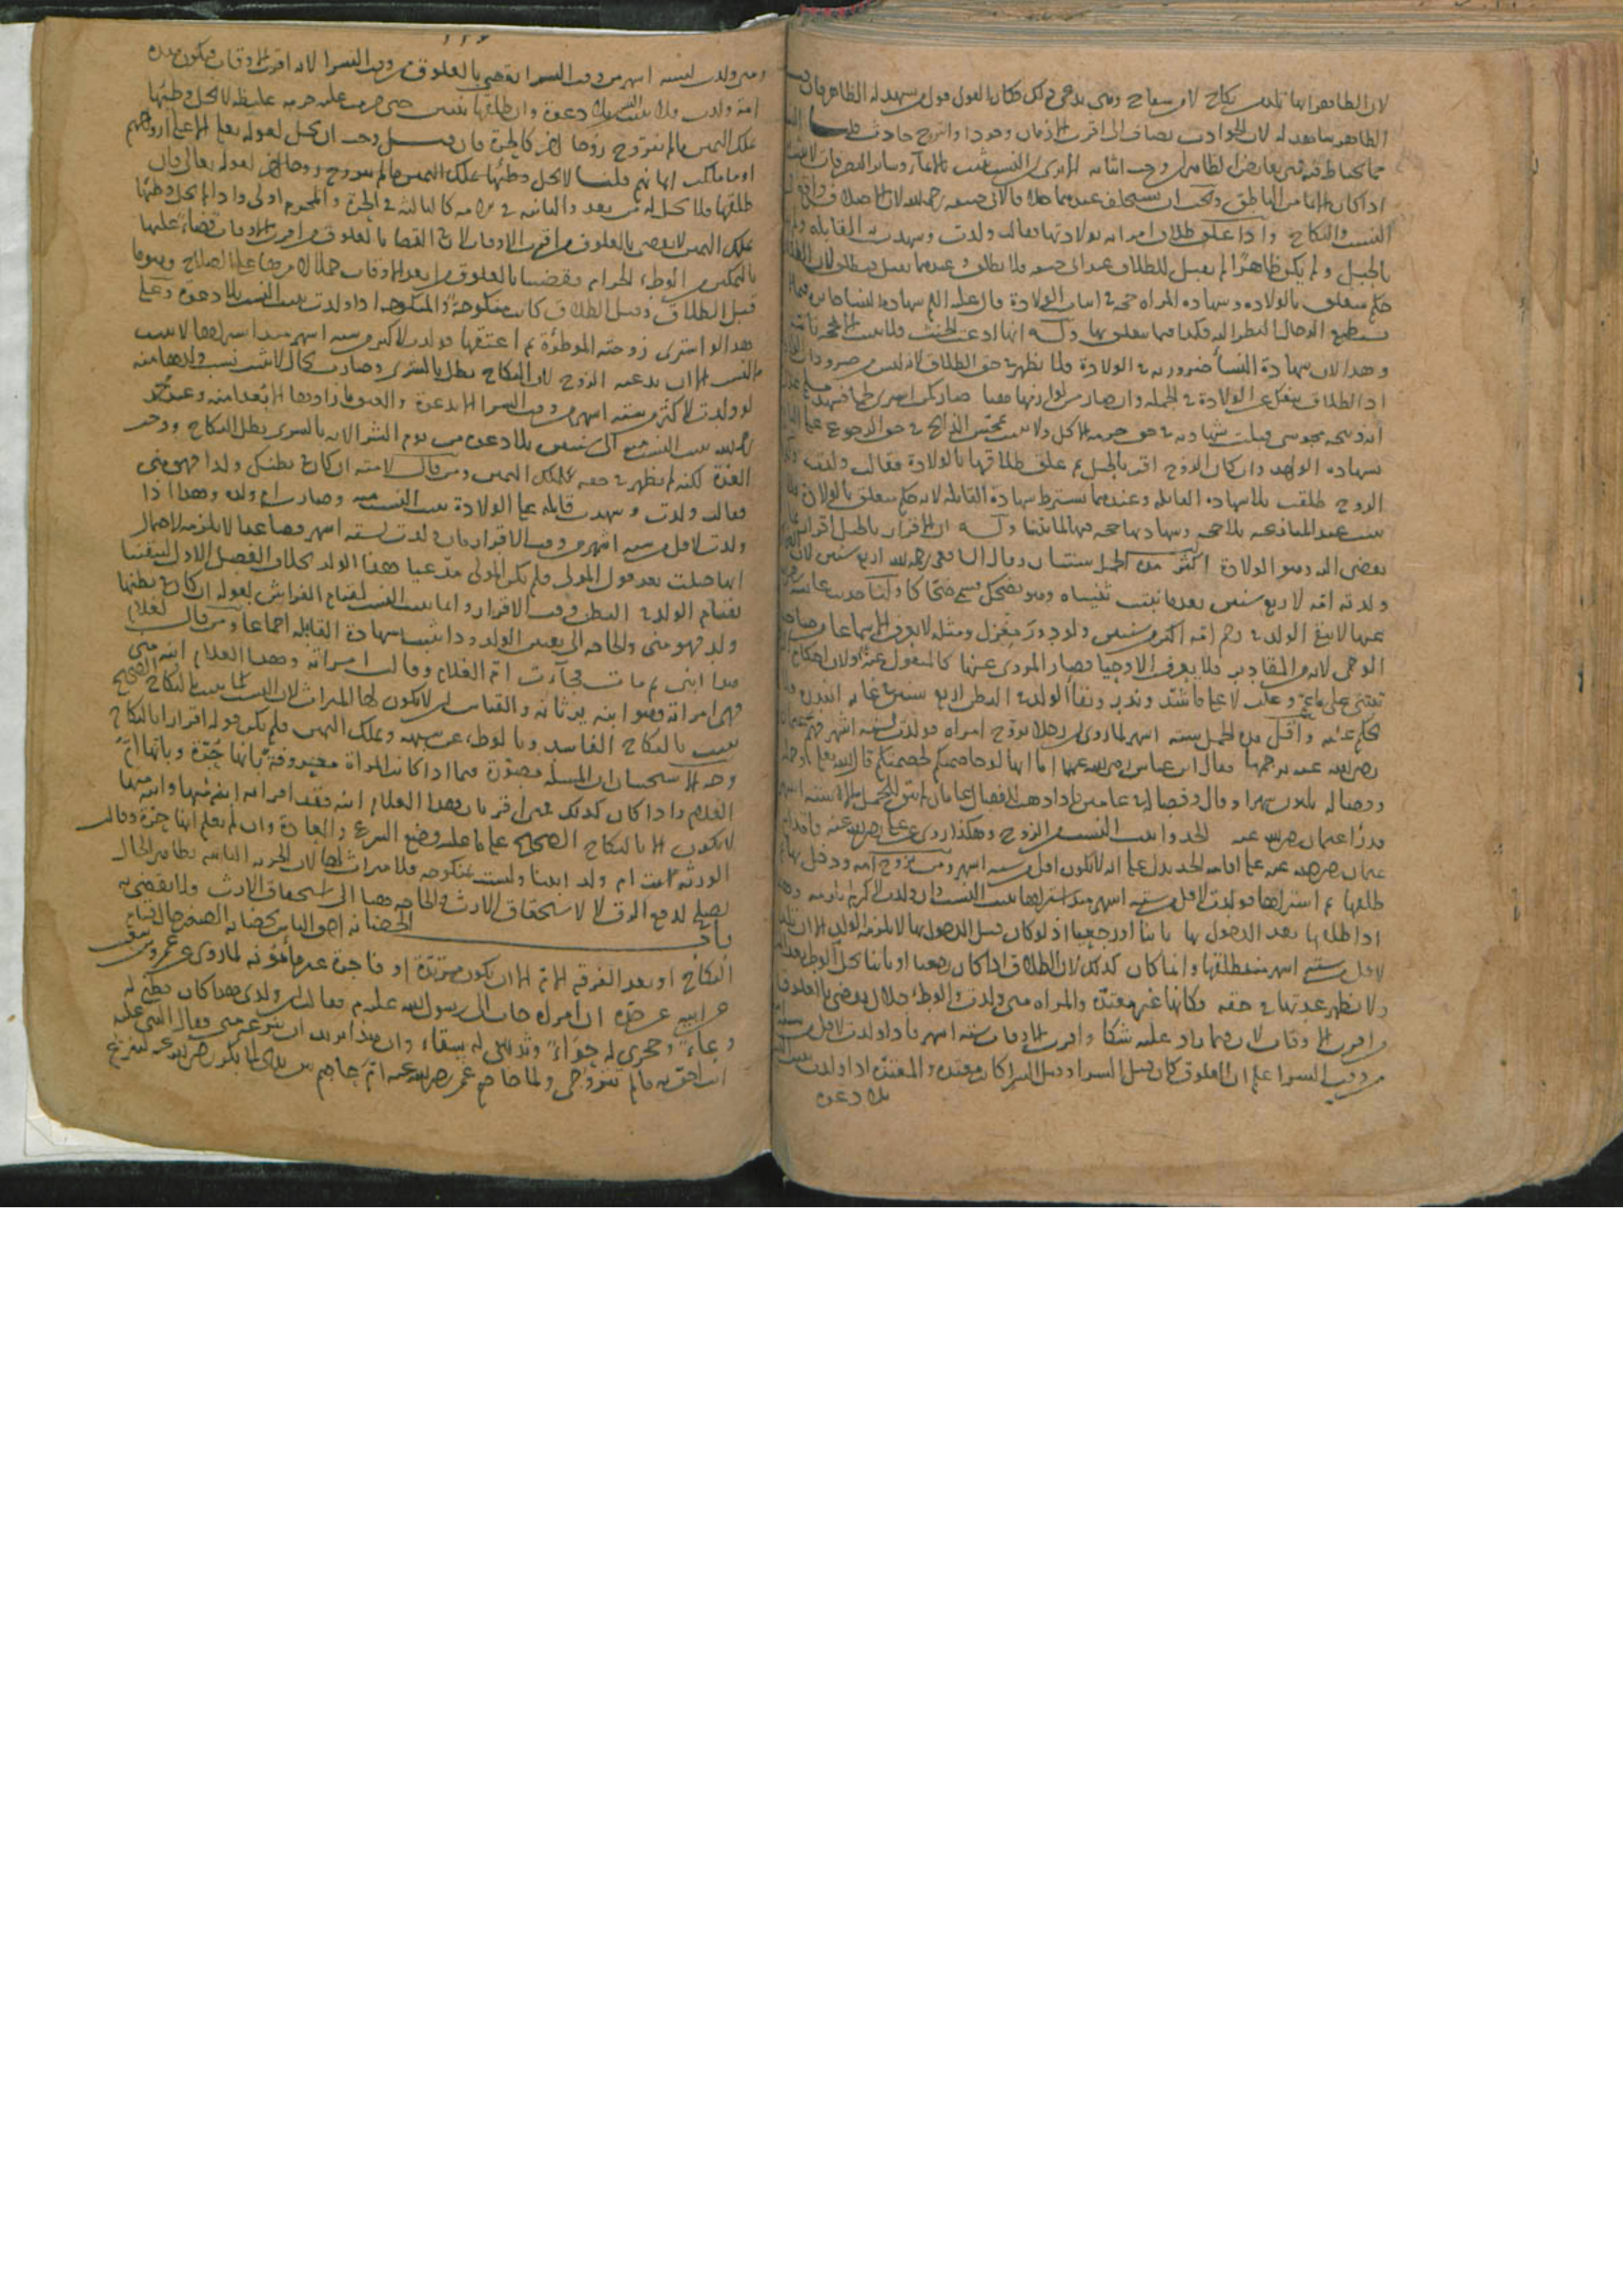 لان الظاهر انها تلد من نكاح لا من سفاح وهي تدعي ذلك فكان القول قول من يشهد له الظاهر
الظاهر شاهد له لان الحوادث تضاف الى اقرب الازمان وجودا والتزوج حادث
النسب والنكاح واذا علق طلاق امراته بولادتها فقالت ولدت وشهدت القابلة
بالحبل ولم يكن ظاهرا لم يقبل للطلاق عند ابي حنيفة فلا تطلق وعندهما يقبل
حكم متعلق بالولادة وشهادة المراة حجة في اثبات الولادة قال عليه السلم شهادة النساء جائزة
يستطيع الرجال النظر اليه فكذا فيما يتعلق بها وله انها ادعت الحنث فلا يثبت الا بحجة تامة
وهذا لان شهادة النساء ضرورية في الولادة فلا يظهر في حق الطلاق لانه ليس من ضروراتها
اذ الطلاق ينفك عن الولادة في الجملة وان صار من لوازمها هنا صار كمن اشترى لحما فشهد
انه ذبيحة مجوسي قبلت شهادته في حق حرمة الاكل ولا يثبت تمجس الذابح في حق الرجوع
بشهادة الواحد وان كان الزوج اقر بالحبل ثم علق طلاقها بالولادة فقالت ولدت
الزوج طلقت بلا شهادة القابلة وعندهما تشترط شهادة القابلة لانه حكم متعلق بالولادة
يفضي اليه وهو الولادة اكثر مدة الحمل سنتان وقال الشافعي رحمه الله اربع سنين لان
ولدته امه لاربع سنين بعدما نبتت ثنيتاه وهو يضحك فسمي ضحاكا ولنا حديث عائشة
عنها لا يبقى الولد في رحم امه اكثر من سنتين ولو بدور مغزل ومثله لا يعرف الا سماعا
الوحي لانه من المقادير فلا يعرف الا وحيا فصار المروي عنها كالمنقول عنه ولان احكام
تبتنى على ما عم وغلب لا على ما شذ وندر وبقاء الولد في البطن اربع سنين في غاية الندرة
واقل مدة الحمل ستة اشهر لما روي ان رجلا تزوج امراة فولدت لستة اشهر فهم عثمان
رضي الله عنه برجمها فقال ابن عباس رضي الله عنهما اما انها لو خاصمتكم لخصمتكم قال الله تعالى وحمله
وفصاله ثلثون شهرا وقال وفصاله في عامين فاذا ذهب للفصال عامان لم يبق للحمل الا ستة اشهر
فدرا عثمان رضي الله عنه الحد واثبت النسب من الزوج وهكذا روي عن علي رضي الله عنه
ومن تزوج امة ودخل بها
طلقها ثم اشتراها فولدت لاقل من ستة اشهر منذ اشتراها يثبت النسب وان ولدت لاكثر لم يلزمه وهذا
اذا طلقها بعد الدخول بها بائنا او رجعيا اذ لو كان قبل الدخول بها لا يلزمه الولد الا ان تلد
لاقل من ستة اشهر منذ طلقها وانما كان كذلك لان الطلاق اذا كان رجعيا او بائنا يحل الوطء
ولا تظهر عدتها في حقه فكانها غير معتدة والمراة متى ولدت والوطء حلال يقضى بالعلوق
من اقرب الاوقات
من وقت الشرا علم ان العلوق كان قبل الشرا وقبل الشرا كانت معتدة والمعتدة اذا ولدت يثبت النسب
بلا دعوة
ومتى ولدت لستة اشهر من وقت الشرا يقضى بالعلوق من وقت الشرا لانه اقرب الاوقات فيكون هذه
امة ولدت فلا يثبت النسب بلا دعوة وان طلقها ثنتين حتى حرمت عليه حرمة غليظة لا يحل وطئها
بملك اليمين ما لم تتزوج زوجا اخر كالحرة فان قيل وجب ان تحل لقوله تعالى الا على ازواجهم
او ما ملكت ايمانهم قلنا لا يحل وطئها بملك اليمين ما لم تتزوج زوجا اخر لقوله تعالى فان
طلقها فلا تحل له من بعد والثانية في الامة كالثالثة في الحرة والمحرم اولى واذا لم يحل وطئها
بملك اليمين لا يقضى بالعلوق من اقرب الاوقات لان القضا بالعلوق من اقرب الاوقات قضاء عليها
بالتمكين من الوطء الحرام فقضينا بالعلوق من ابعد الاوقات حملا لامرهما على الصلاح وهو ما
قبل الطلاق وقبل الطلاق كانت منكوحة والمنكوحة اذا ولدت يثبت النسب بلا دعوة وعلى
هذا لو اشترى زوجته الموطوءة ثم اعتقها فولدت لاكثر من ستة اشهر منذ اشتراها لا يثبت
النسب الا ان يدعيه الزوج لان النكاح بطل بالشرى وصارت بحال لا يثبت نسب ولدها منه
لو ولدت لاكثر من ستة اشهر من وقت الشرا الا بدعوة والعتق ما زادها الا بعدا منه وعند محمد
رحمه الله يثبت النسب الى سنتين بلا دعوة من يوم الشرا لانه بالشرى بطل النكاح ووجب
العدة لكنه لم يظهر في حقه لملك اليمين ومن قال لامته ان كان في بطنك ولد فهو مني
فقالت ولدت وشهدت قابلة على الولادة يثبت النسب منه وصارت ام ولده وهذا اذا
ولدت لاقل من ستة اشهر من وقت الاقرار فان ولدت لستة اشهر فصاعدا لا يلزمه لاحتمال
انها حبلت بعد قول المولى فلم يكن المولى مدعيا هذا الولد بخلاف الفصل الاول لتيقننا
بقيام الولد في البطن في وقت الاقرار وانما يثبت النسب لقيام الفراش بقوله ان كان في بطنها
ولد فهو مني والحاجة الى تعيين الولد وذا يثبت بشهادة القابلة اجماعا ومن قال لغلام
هذا ابني ثم مات فجاءت ام الغلام وقالت انا امراته وهذا الغلام ابنه مني
فهي امراته وهو ابنه يرثانه والقياس ان لا يكون لها الميراث لان النسب كما يثبت بالنكاح الصحيح
يثبت بالنكاح الفاسد وبالوطء عن شبهة وبملك اليمين فلم يكن قوله اقرارا بالنكاح
وجه الاستحسان ان المسئلة مصورة فيما اذا كانت المراة معروفة بانها حرة وبانها ام
الغلام واذا كان كذلك
لا يكون الا بالنكاح الصحيح على ما عليه وضع الشرع والعادة وان لم يعلم انها حرة وقالت
الورثة انت ام ولد ابينا ولست بمنكوحة فلا ميراث لها لان الحرية الثابتة بظاهر الحال
يصلح لدفع الرق لا لاستحقاق الارث والحاجة هنا الى استحقاق الارث فلا يقضى به
باب الحضانة احق الناس بحضانة الصغير حال قيام
النكاح او بعد الفرقة الام الا ان يكون مرتدة او فاجرة غير مأمونة لما روي عن عمرو بن شعيب
عن ابيه عن جده ان امراة جاءت الى رسول الله عليه السلم فقالت ان ولدي هذا كان بطني له
وعاء وحجري له حواء وثديي له سقاء وان هذا يريد ان ينتزعه مني فقال النبي عليه
انت احق به ما لم تتزوجي ولما خاصم عمر رضي الله عنه ام عاصم بين يدي ابي بكر رضي الله عنه لينتزع